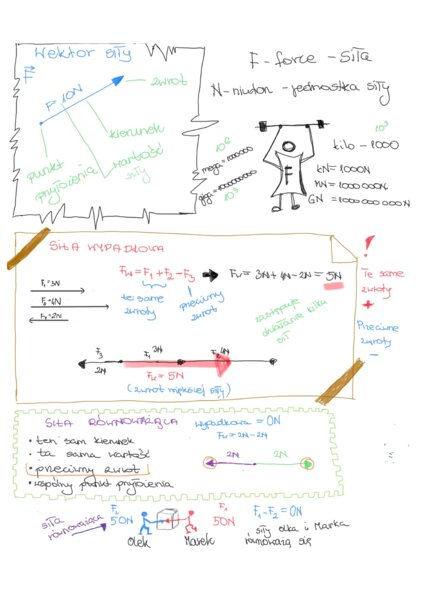 Wektor siły
F
F=10N
zwrot
kierunek
wartość
siły
punkt
przyłożenia
F - force - siła
N - niuton - jednostka siły
10⁶
mega = 1000000
giga = 1000000000
10⁹
F
10³
kilo - 1000
kN = 1000N
MN = 1000000N
GN = 1000000000N
SIŁA WYPADKOWA
F₁=3N
F₂=4N
F₃=2N
Fw = F₁ + F₂ - F₃
te same
zwroty
przeciwny
zwrot
Fw = 3N + 4N - 2N = 5N
zastępuje
działanie kilku
sił
! Te same
zwroty
+
Przeciwne
zwroty
-
F₃
2N
F₁ 3N
F₂ 4N
Fw = 5N
(zwrot większej siły)
SIŁA RÓWNOWAŻĄCA
wypadkowa = 0N
Fw = 2N - 2N
• ten sam kierunek
• ta sama wartość
• przeciwny zwrot
• wspólny punkt przyłożenia
2N 2N
siła
równoważąca
F₂
50N
Olek
Marek
F₁
50N
F₁ - F₂ = 0N
siły Olka i Marka
równoważą się